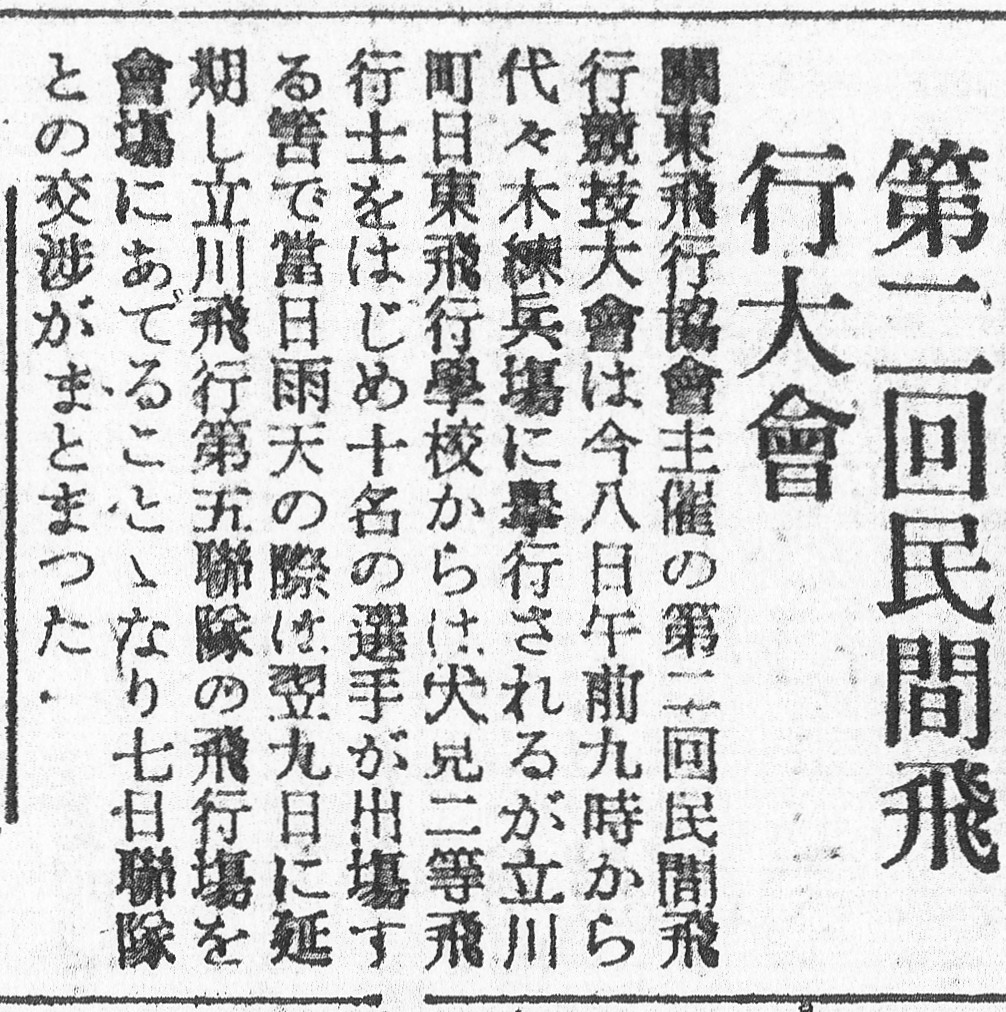 第二回民間飛
行大會
關東飛行協會主催の第二回民間飛
行競技大會は今八日午前九時から
代々木練兵塲に擧行されるが立川
町日東飛行學校からは犬見二等飛
行士をはじめ十名の選手が出塲す
る筈で當日雨天の際は翌九日に延
期し立川飛行第五聯隊の飛行塲を
會塲にあてることゝなり七日聯隊
との交渉がまとまつた．